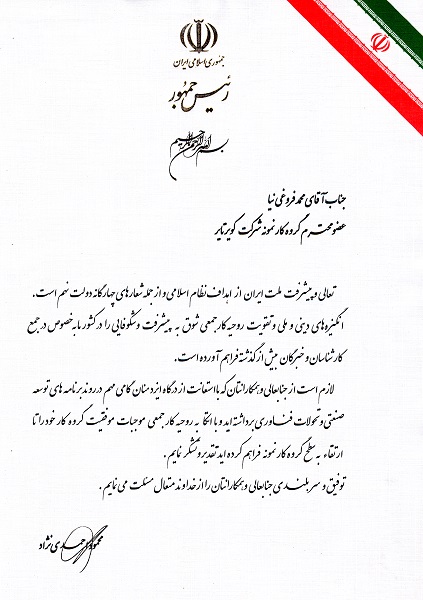 جمهوری اسلامی ایران
رئیس جمهور
بسم الله الرحمن الرحیم
جناب آقای محمد فروغی نیا
عضو محترم گروه کار نمونه شرکت کویر تایر
تعالی و پیشرفت ملت ایران از اهداف نظام اسلامی و از جمله شعارهای چهارگانه دولت نهم است.
انگیزه های دینی و ملی و تقویت روحیه کار جمعی شوق به پیشرفت و شکوفایی را در کشور ما به خصوص در جمع
کارشناسان و خبرگان بیش از گذشته فراهم آورده است.
لازم است از جنابعالی و همکارانتان که با استعانت از درگاه ایزد منان گامی مهم در روند برنامه های توسعه
صنعتی و تحولات فناوری برداشته اید و با اتکا به روحیه کار جمعی موجبات موفقیت گروه کار خود را تا
ارتقاء به سطح گروه کار نمونه فراهم کرده اید تقدیر و تشکر نمایم.
توفیق و سربلندی جنابعالی و همکارانتان را از خداوند متعال مسئلت می نمایم.
محمود احمدی نژاد